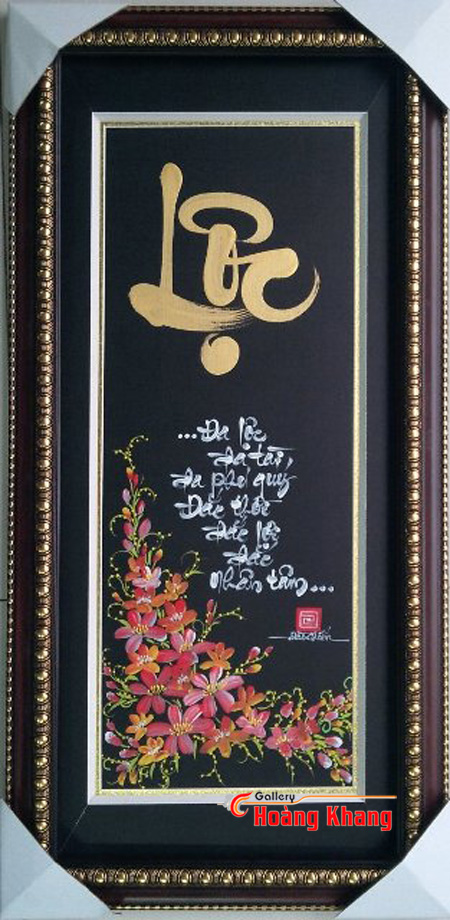 Lộc
...Đa lộc
đa tài,
đa phú quý
Đắc thời
đắc lộc
đắc
nhân tâm...
Gallery
Hoàng Khang